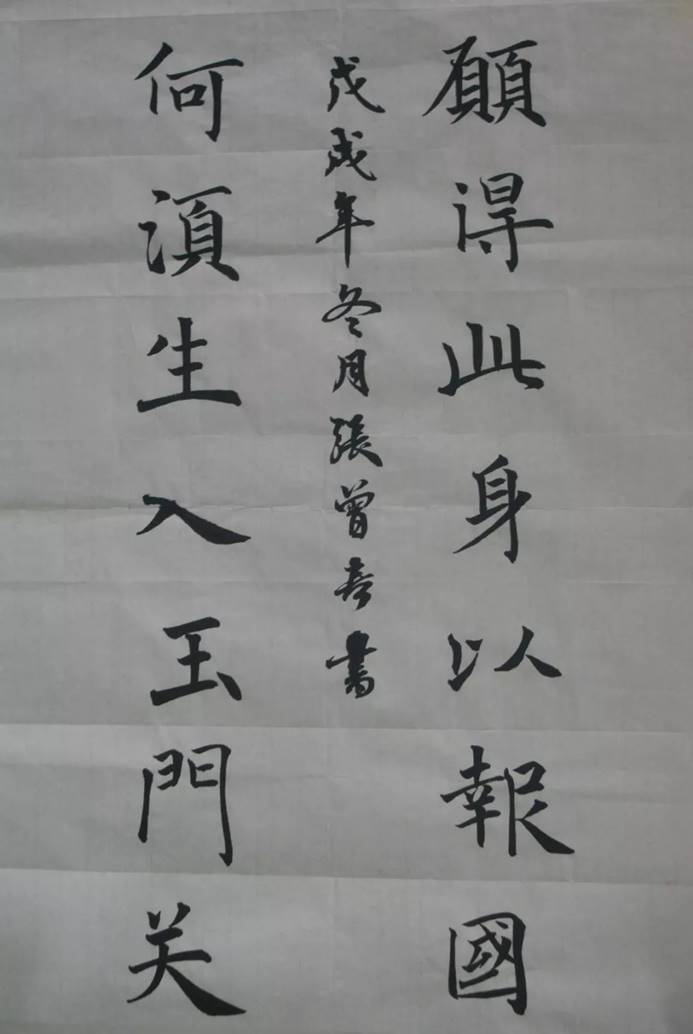 願得此身以報國
戊戌年冬月張曾喜書
何須生入玉門关